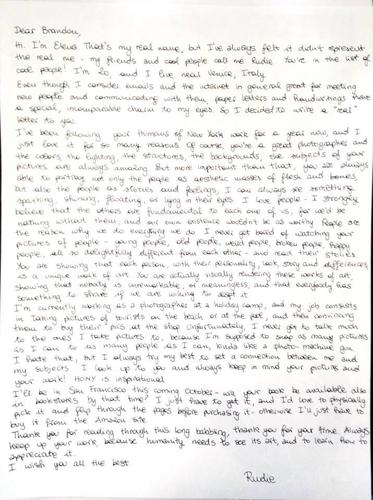 Dear Brandon,
Hi. I'm Elena. That's my real name, but I've always felt it didn't represent
the real me - my friends and cool people call me Rudie. You're in the list of
cool people! I'm 20, and I live near Venice, Italy.
Even though I consider emails and the internet in general great for meeting
new people and communicating with them, paper letters and handwritings have
a special, incomparable charm to my eyes. So I decided to write a "real"
letter to you.
I've been following your Humans of New York work for a year now, and I
just love it for so many reasons. Of course, you're a great photographer and
the colours, the lighting, the structures, the backgrounds, the subjects of your
pictures are always amazing. But more important than that, you are always
able to portray not only the people as aesthetic masses of flesh and bones,
but also the people as stories and feelings, I can always see something
sparkling, shining, floating, or lying in their eyes. I love people. I strongly
believe that the others are fundamental to each one of us, for we'd be
nothing without them, and our own existence wouldn't be as worthy. People are
the reason why we do everything we do. I never get bored of watching your
pictures of people - young people, old people, weird people, broken people, happy
people, all so delightfully different from each other - and read their stories.
You are showing that each person, with their personality, look, story and differences
is a unique work of art. You are actually visually rendering these works of art,
showing that nobody is unremarkable, or meaningless, and that everybody has
something to share if we are willing to accept it.
I'm currently working as a photographer at a holiday camp, and my job consists
in taking pictures of tourists on the beach or at the park, and then convincing
them to buy their pics at the shop. Unfortunately, I never get to talk much
to the ones I take pictures to, because I'm supposed to snap as many pictures
as I can to as many people as I can, kinda like a photo-machine gun.
I hate that, but I always try my best to set a connection between me and
my subjects. I look up to you and always keep in mind your pictures and
your work! HONY is inspirational.
I'll be in San Francisco this coming October - will your book be available also
in bookstores by that time? I just have to get it, and I'd love to physically
pick it and flip through the pages before purchasing it - otherwise I'll just have to
buy it from the Amazon site.
Thank you for reading through this long babbling, thank you for your time. Always
keep up your work, because humanity needs to see its art, and to learn how to
appreciate it.
I wish you all the best
Rudie